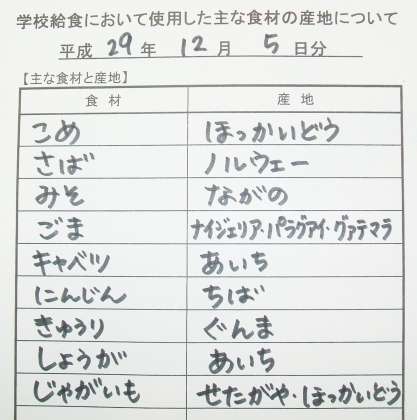 学校給食において使用した主な食材の産地について
平成 29 年 12 月 5 日分
【主な食材と産地】
食材 産地
こめ ほっかいどう
さば ノルウェー
みそ ながの
ごま ナイジェリア・パラグアイ・グァテマラ
キャベツ あいち
にんじん ちば
きゅうり ぐんま
しょうが あいち
じゃがいも せたがや・ほっかいどう